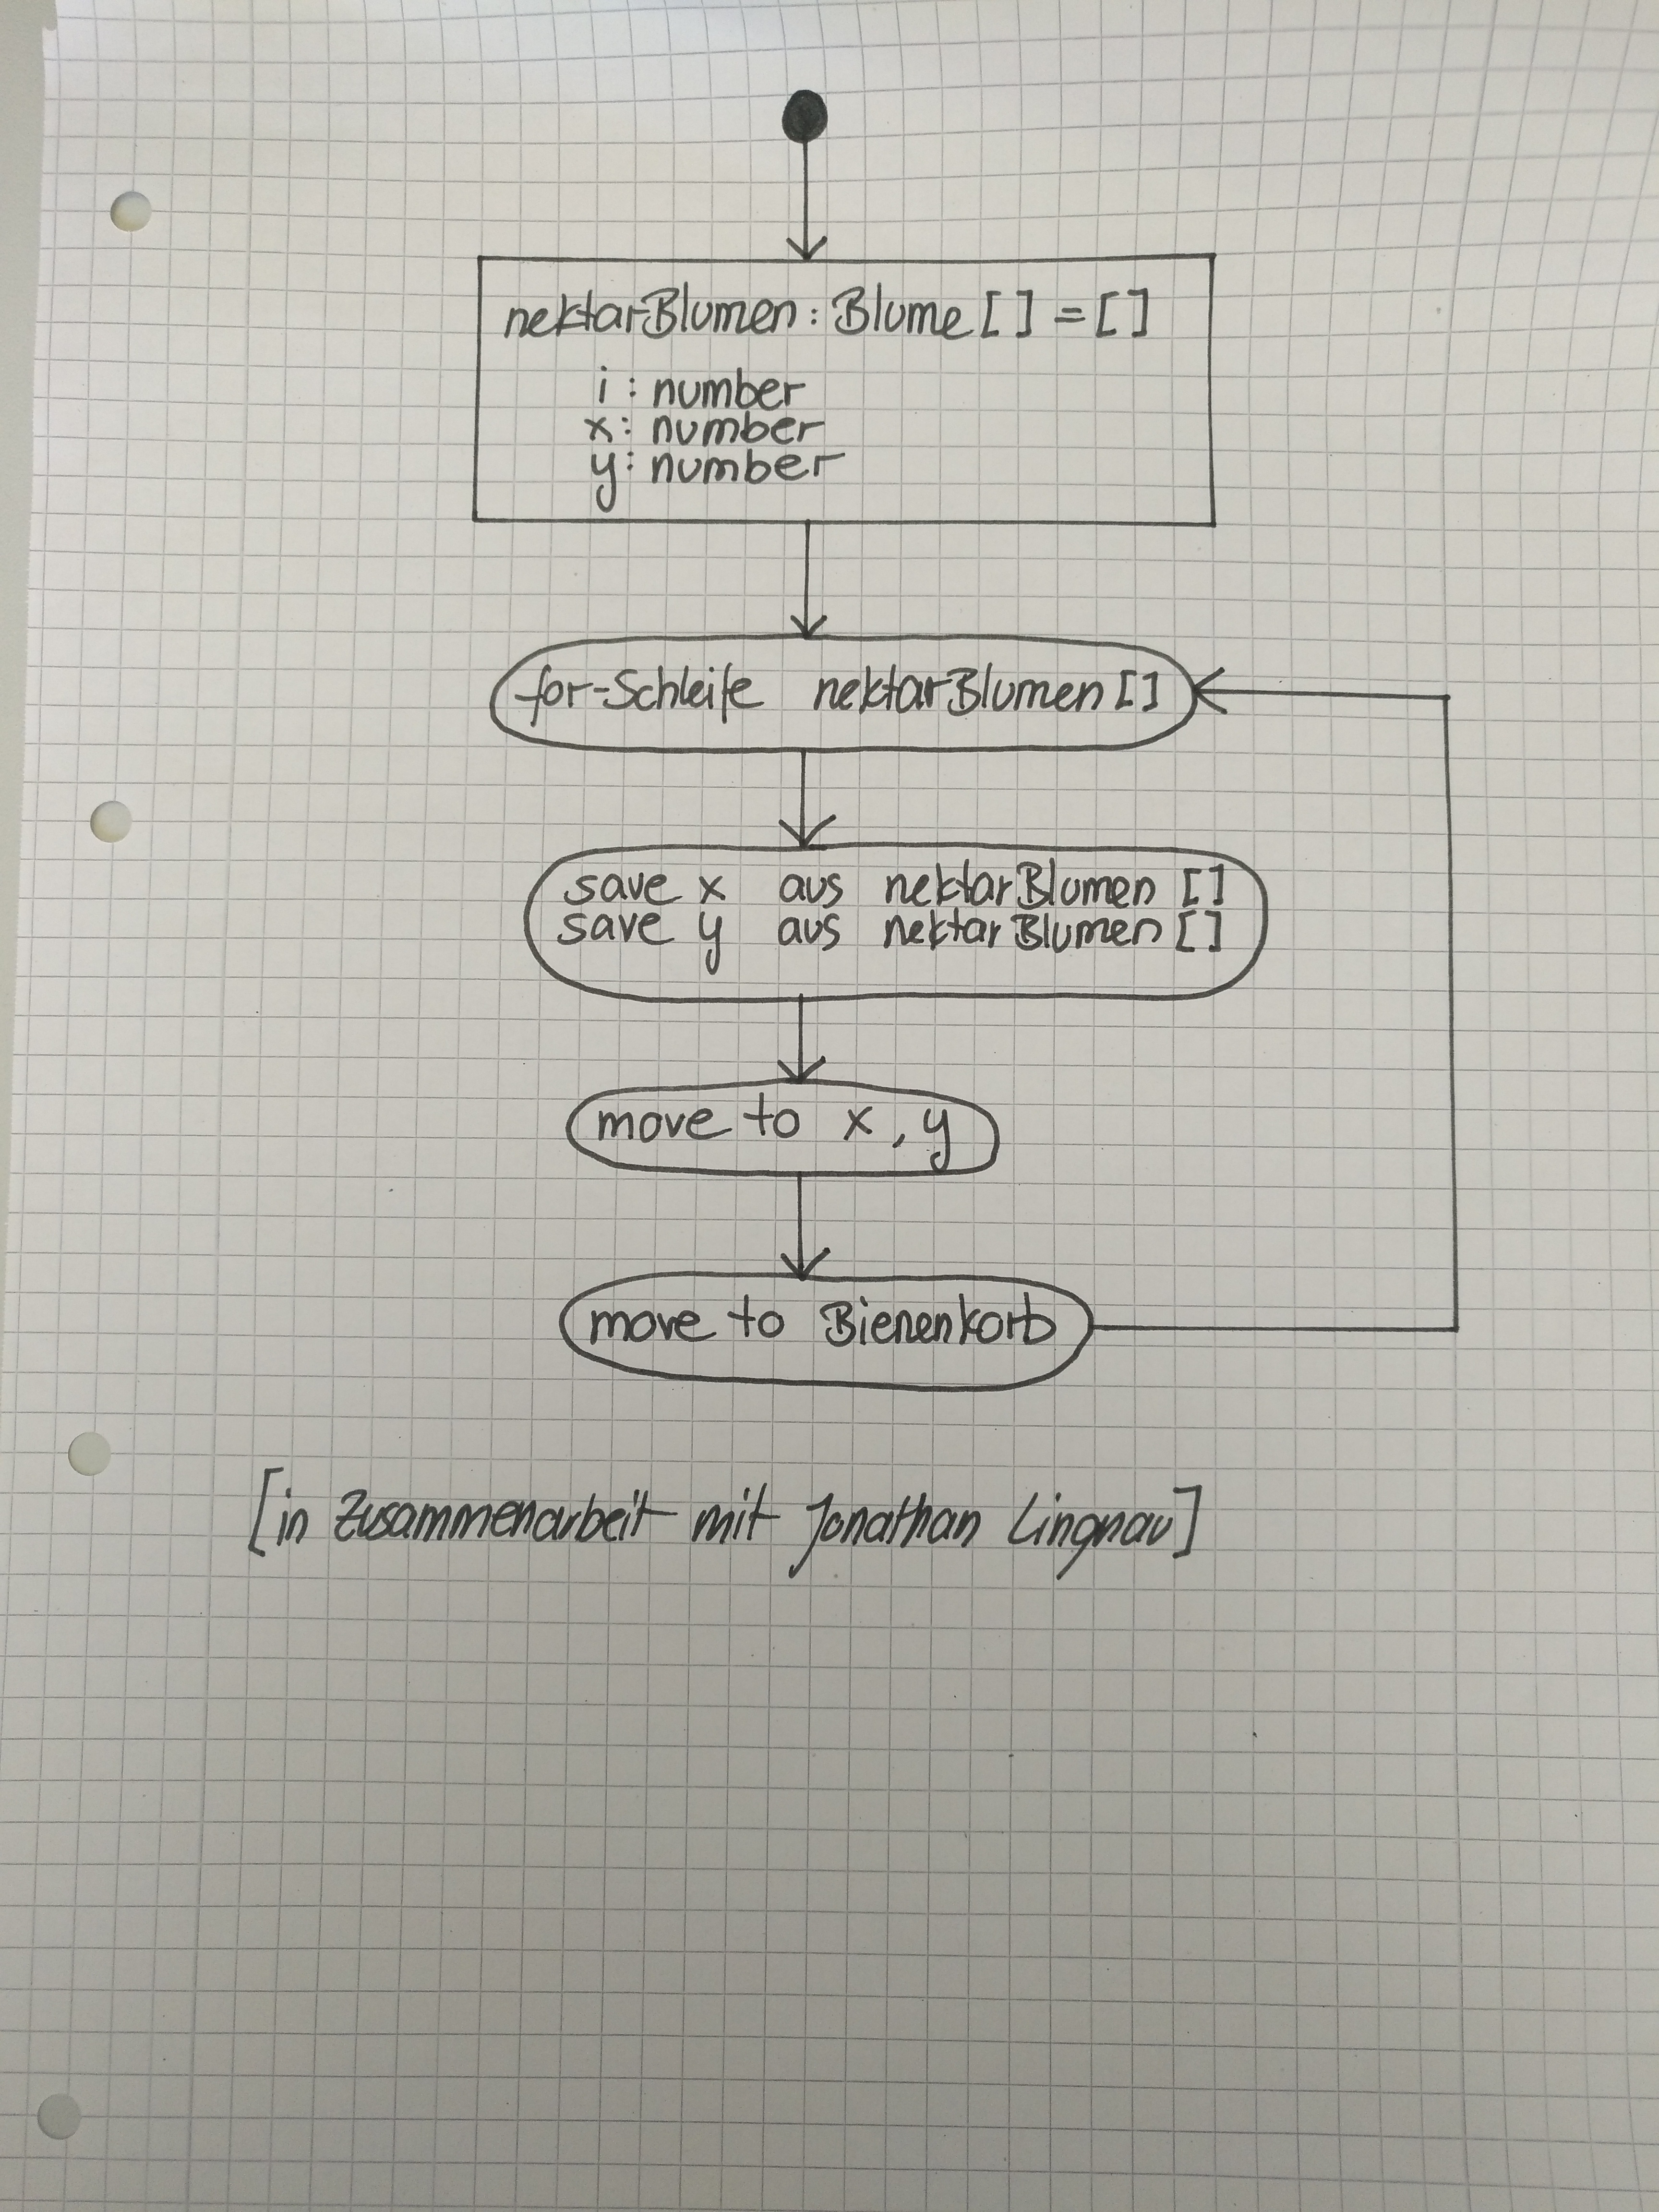 nektarBlumen : Blume [ ] = [ ]
i : number
x : number
y : number
for-Schleife nektarBlumen [ ]
save x aus nektarBlumen [ ]
save y aus nektarBlumen [ ]
move to x , y
move to Bienenkorb
[in Zusammenarbeit mit Jonathan Lingnau]